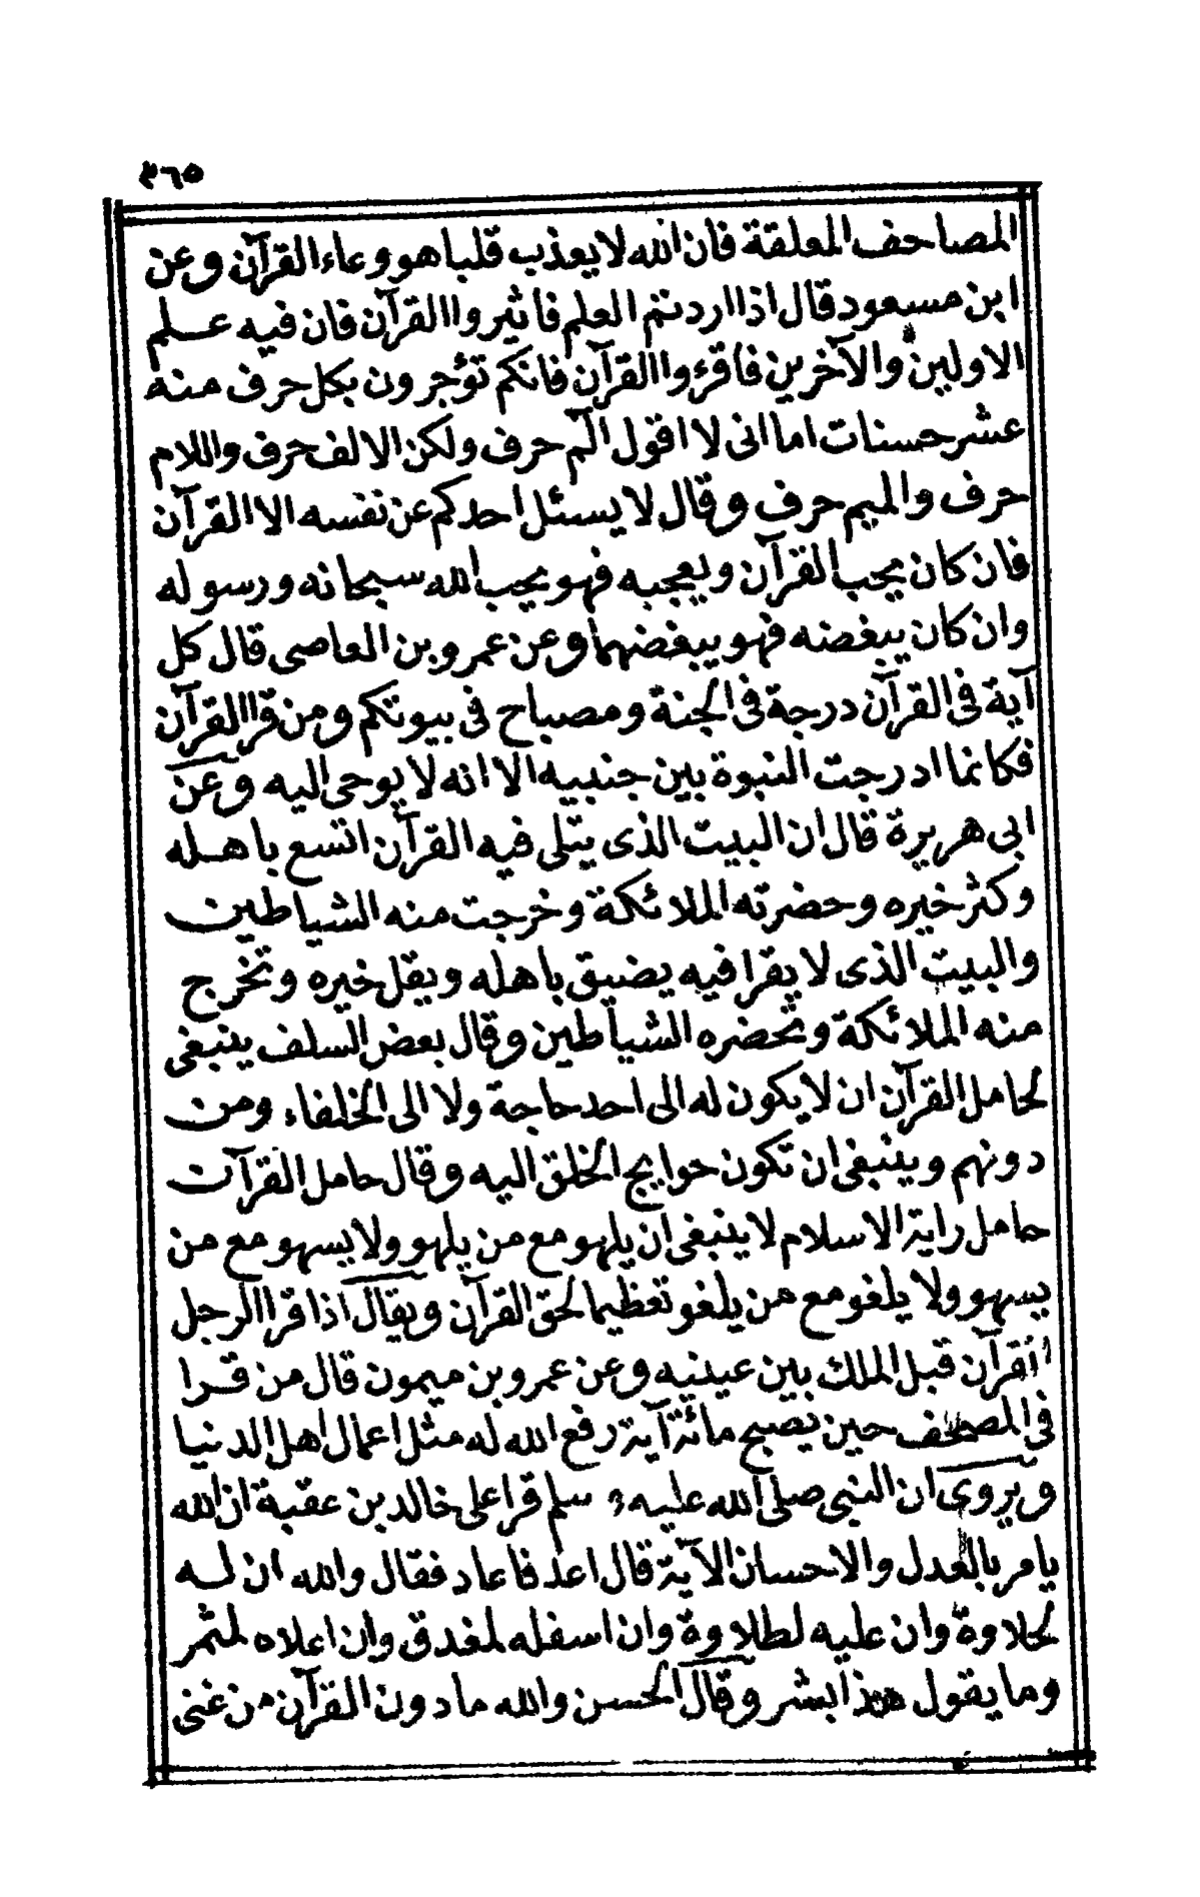 ٣٦٥
المصاحف المعلقة فان الله لا يعذب قلبا هو وعاء القرآن وعن
ابن مسعود قال اذا اردتم العلم فاثيروا القرآن فان فيه علم
الاولين والآخرين فاقرؤا القرآن فانكم تؤجرون بكل حرف منه
عشر حسنات اما انى لا اقول الٓم حرف ولكن الالف حرف واللام
حرف والميم حرف وقال لا يسئل احدكم عن نفسه الا القرآن
فان كان يحب القرآن ويعجبه فهو يحب الله سبحانه ورسوله
وان كان يبغضه فهو يبغضهما وعن عمرو بن العاصى قال كل
آية فى القرآن درجة فى الجنة ومصباح فى بيوتكم ومن قرا القرآن
فكانما ادرجت النبوة بين جنبيه الا انه لا يوحى اليه وعن
ابى هريرة قال ان البيت الذى يتلى فيه القرآن اتسع باهله
وكثر خيره وحضرته الملائكة وخرجت منه الشياطين
والبيت الذى لا يقرا فيه يضيق باهله ويقل خيره وتخرج
منه الملائكة وتحضره الشياطين وقال بعض السلف ينبغى
لحامل القرآن ان لا يكون له الى احد حاجة ولا الى الخلفاء ومن
دونهم وينبغى ان تكون حوايج الخلق اليه وقال حامل القرآن
حامل راية الاسلام لا ينبغى ان يلهو مع من يلهو ولا يسهو مع من
يسهو ولا يلغو مع من يلغو تعظيما لحق القرآن ويقال اذا قرا الرجل
القرآن قبل الملك بين عينيه وعن عمرو بن ميمون قال من قرا
فى المصحف حين يصبح مائة آية رفع الله له مثل اعمال اهل الدنيا
ويروى ان النبى صلى الله عليه وسلم قرا على خالد بن عقبة ان الله
يامر بالعدل والاحسان الآية قال اعد فاعاد فقال والله ان له
لحلاوة وان عليه لطلاوة وان اسفله لمغدق وان اعلاه لمثمر
وما يقول هذا بشر وقال الحسن والله ما دون القرآن من غنى